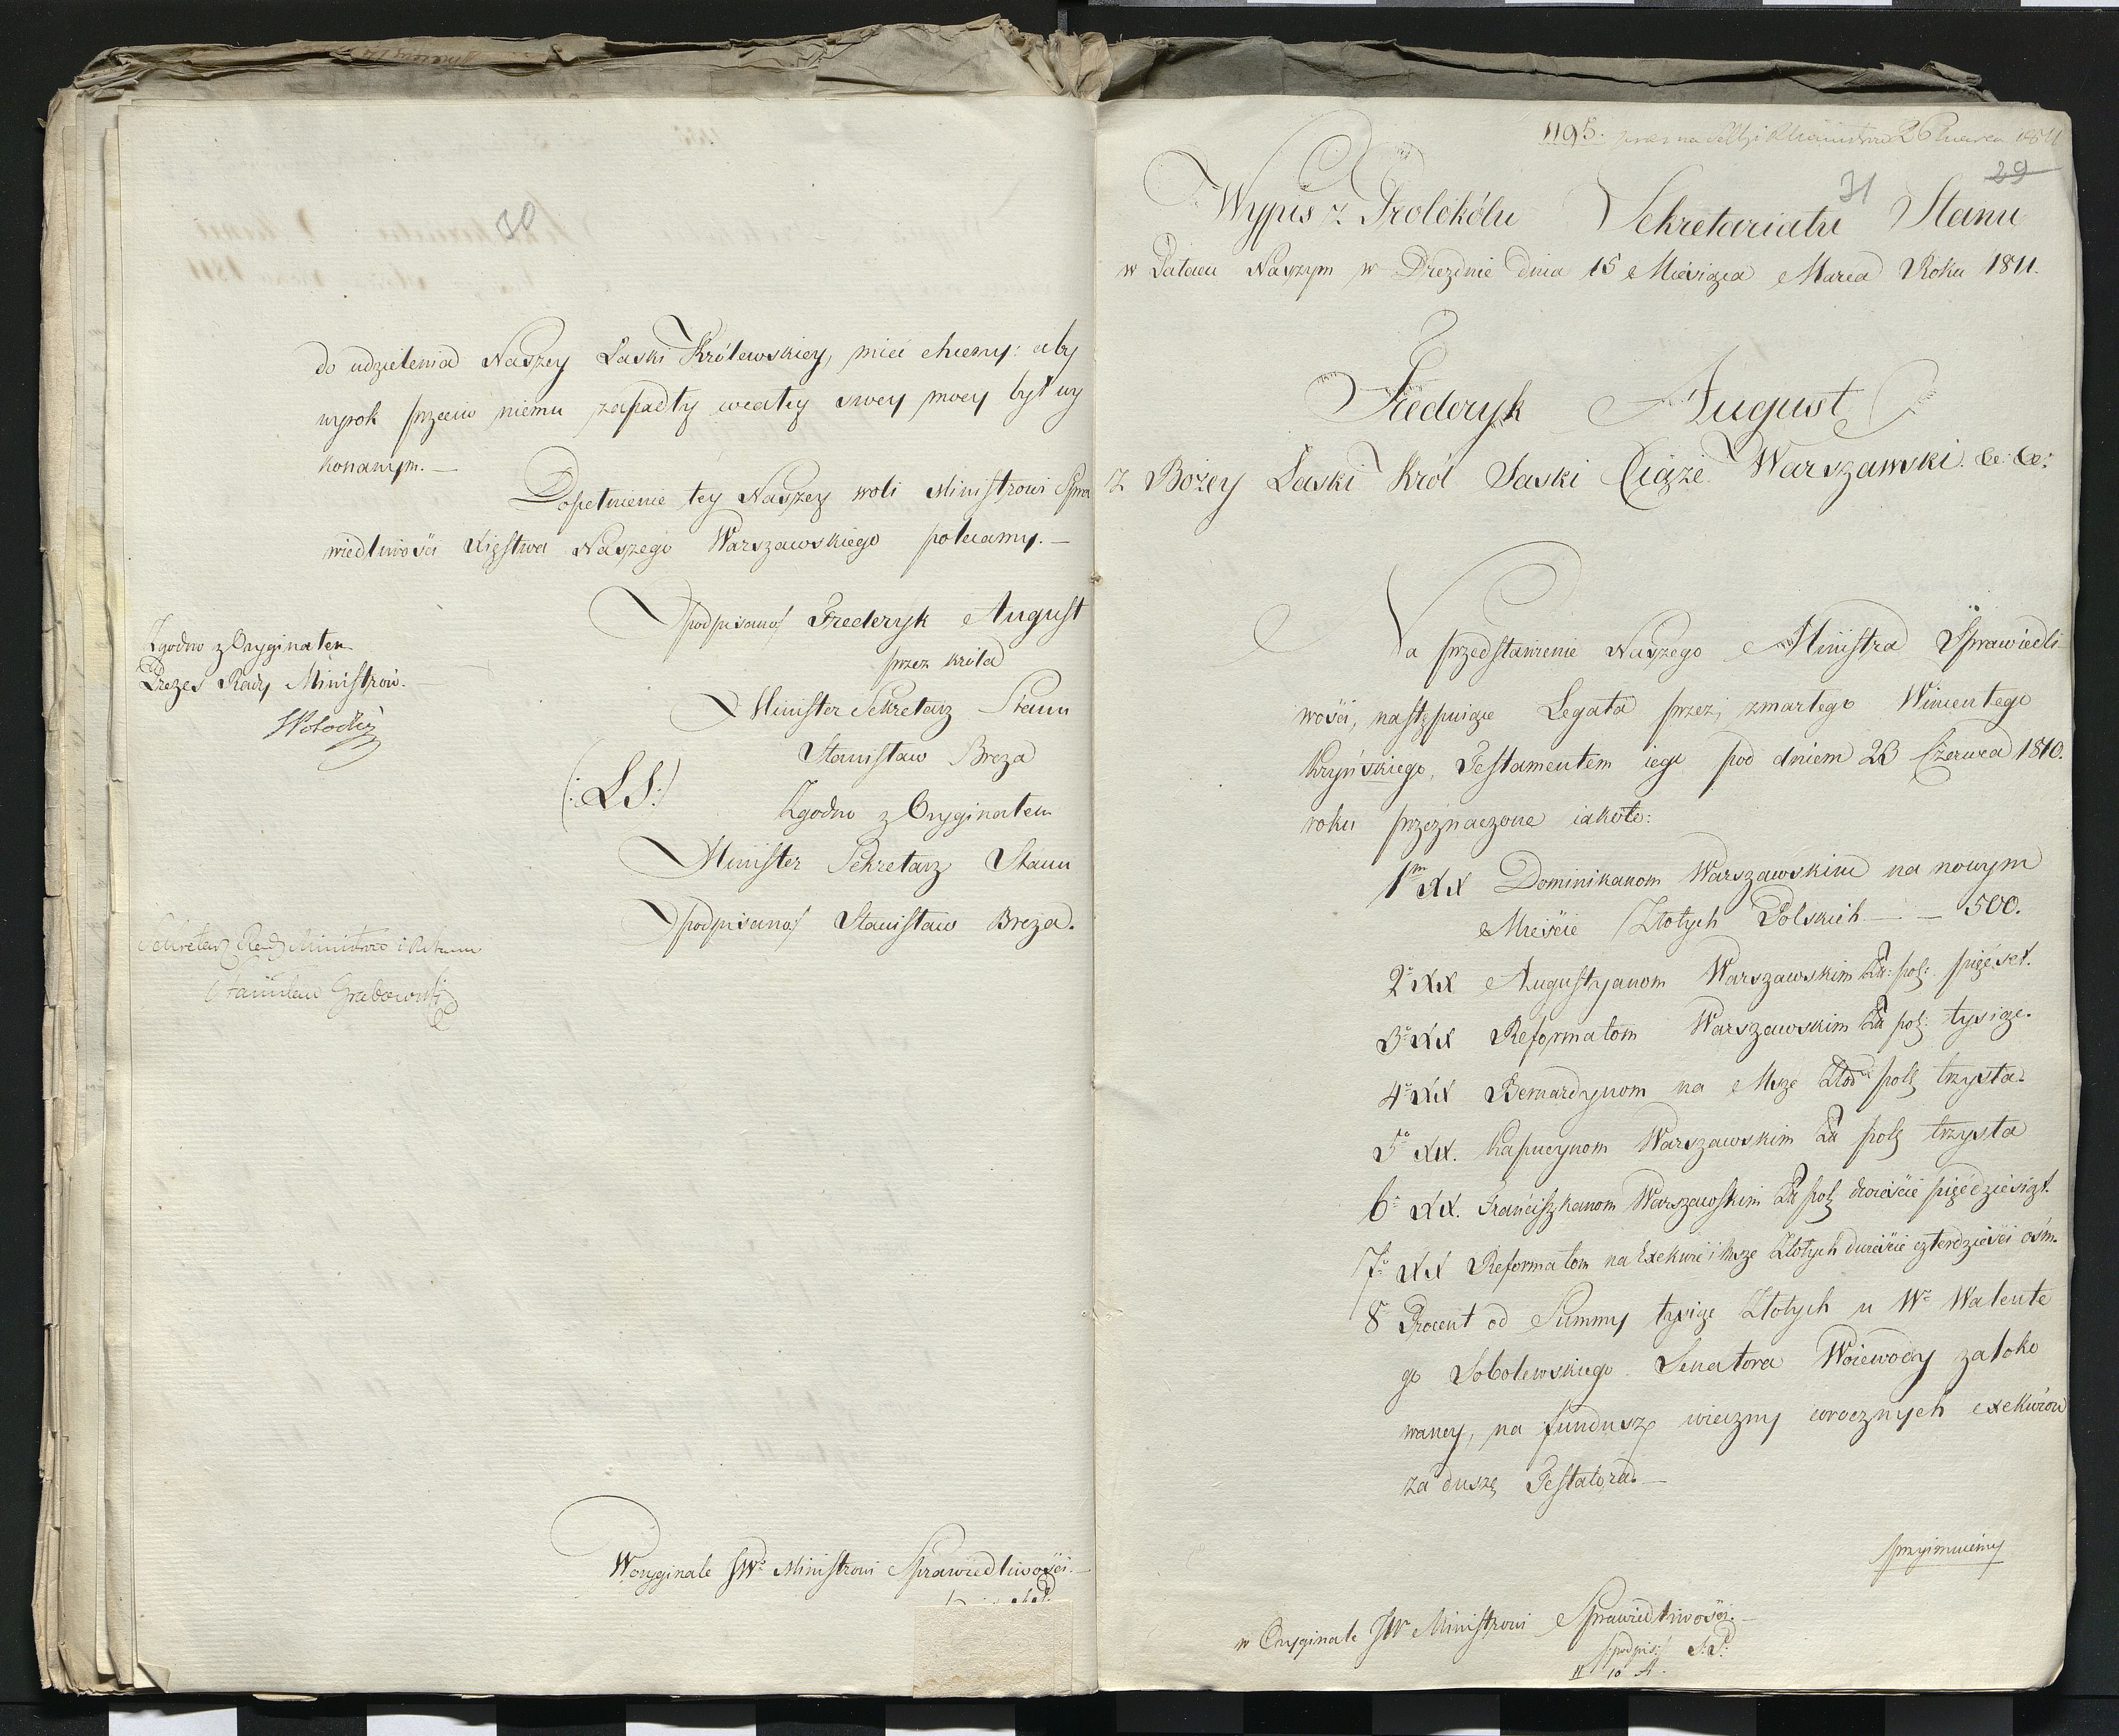 30
do udzielenia Naszey Łaski Królewskiey, mieć chcemy: aby
wyrok przeciw niemu zapadły w całey swey mocy był wy
konanym. —
Dopełnienie tey Naszey woli Ministrowi Spra
wiedliwości Xięstwa Naszego Warszawskiego polecamy. —
podpisano/ Frederyk August
przez króla
Minister Sekretarz Stanu
Stanisław Breza
(: LS:)
Zgodno z Oryginałem
Minister Sekretarz Stanu
/podpisano/ Stanisław Breza.
Zgodno z Oryginałem
Prezes Rady Ministrów.
Sekretarz Rady Ministrów i Stanu
Stanisław Grabowski
W oryginale JWu Ministrowi Sprawiedliwości. —
1195. 26 Marca 1811
29
31
Wypis z Protokółu Sekretariatu Stanu
w Pałacu Naszym w Dreznie dnia 15 Miesiąca Marca Roku 1811.
Frederyk August
z Bożey Łaski Król Saski Xiąże Warszawski. &c: &c:
Na przedstawienie Naszego Ministra Sprawiedli
wości, następuiące Legata przez zmarłego Wincentego
Kryńskiego, Testamentem iego pod dniem 23 Czerwca 1810.
roku przeznaczone iakoto:
1mo XX Dominikanom Warszawskim na nowym
Mieście Złotych Polskich — — 500.
2o XX Augustyanom Warszawskim Zł: pol: pięćset.
3o XX Reformatom Warszawskim Zł pol: tysiąc.
4o XX Bernardynom na Msze Złot pol: trzysta.
5o XX. Kapucynom Warszawskim Zł pol: trzysta
6o XX. Franciszkanom Warszawskim Zł pol: dwieście pięćdziesiąt.
7o XX Reformatom na Exekwie i Msze Złotych dwieście czterdzieści ośm.
8o Procent od Summy tysiąc Złotych u Wo Walente
go Sobolewskiego Senatora Woiewody zaloko
waney, na fundusz wieczny corocznych exekwiów
za duszę Testatora. —
przyimuiemy
w Oryginale JW Ministrowi Sprawiedliwości. —
/podpis:/ S:P: